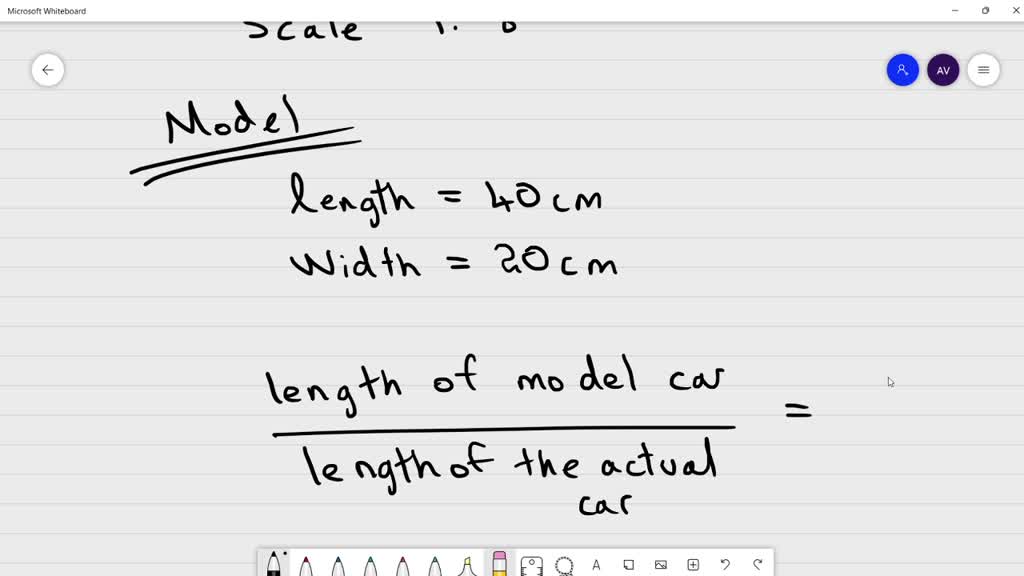 Microsoft Whiteboard
Scale 1:
AV
Model
length = 40cm
width = 20cm
length of model car
=
length of the actual
car
A